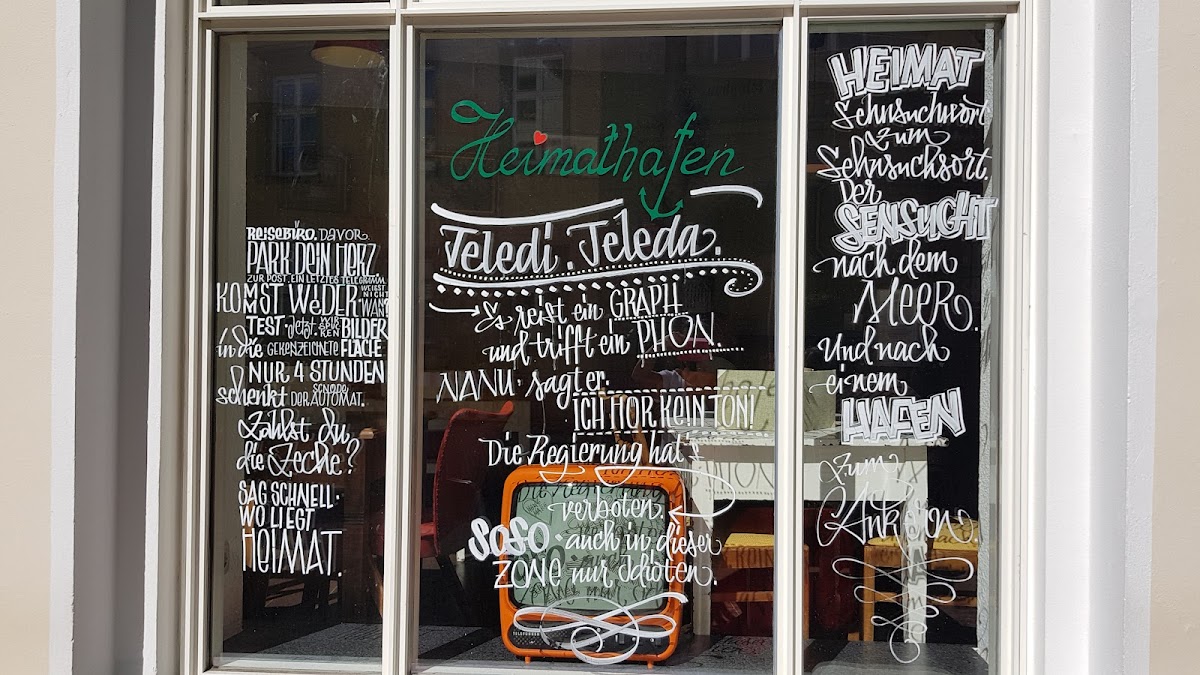 REISEBÜRO. DAVOR.
PARK DEIN HERZ
ZUR POST. EIN LETZTES TELEGRAMM.
KOMST WEDER WEISST NICHT WAN?
TEST. Jetzt. WIR SPÜREN BILDER
in die GEKENZEICHNETE FLÄCHE
NUR 4 STUNDEN
schenkt DER SCHÖDE AUTOMAT.
Zahlst du
die Zeche?
SAG SCHNELL.
WO LIEGT
HEIMAT.
Heimathafen
Teledi. Teleda.
Es reist ein GRAPH
und trifft ein PHON.
NANU. sagt er.
ICH HÖR KEIN TON!
Die Regierung hat's
verboten.
SOSO. auch in dieser
ZONE nur Idioten.
HEIMAT
Sehnsuchwort
zum
Sehsucksort.
Der
SENSUCHT
nach dem
MEER.
Und nach
einem
HAFEN
zum
Ankern.